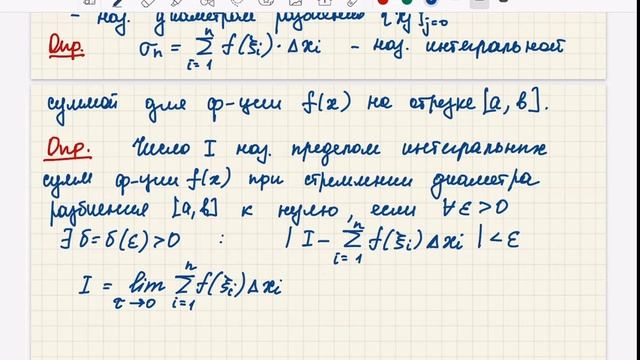 - наз. диаметром разбиения {xj}j=0
Опр. σn = Σ i=1 n f(ξi)·Δxi - наз. интегральной
суммой для ф-ции f(x) на отрезке [a, b].
Опр. Число I наз. пределом интегральных
сумм ф-ции f(x) при стремлении диаметра
разбиения [a, b] к нулю, если ∀ε>0
∃ δ=δ(ε)>0 : | I - Σ i=1 n f(ξi)Δxi | < ε
I = lim τ→0 Σ i=1 n f(ξi)Δxi